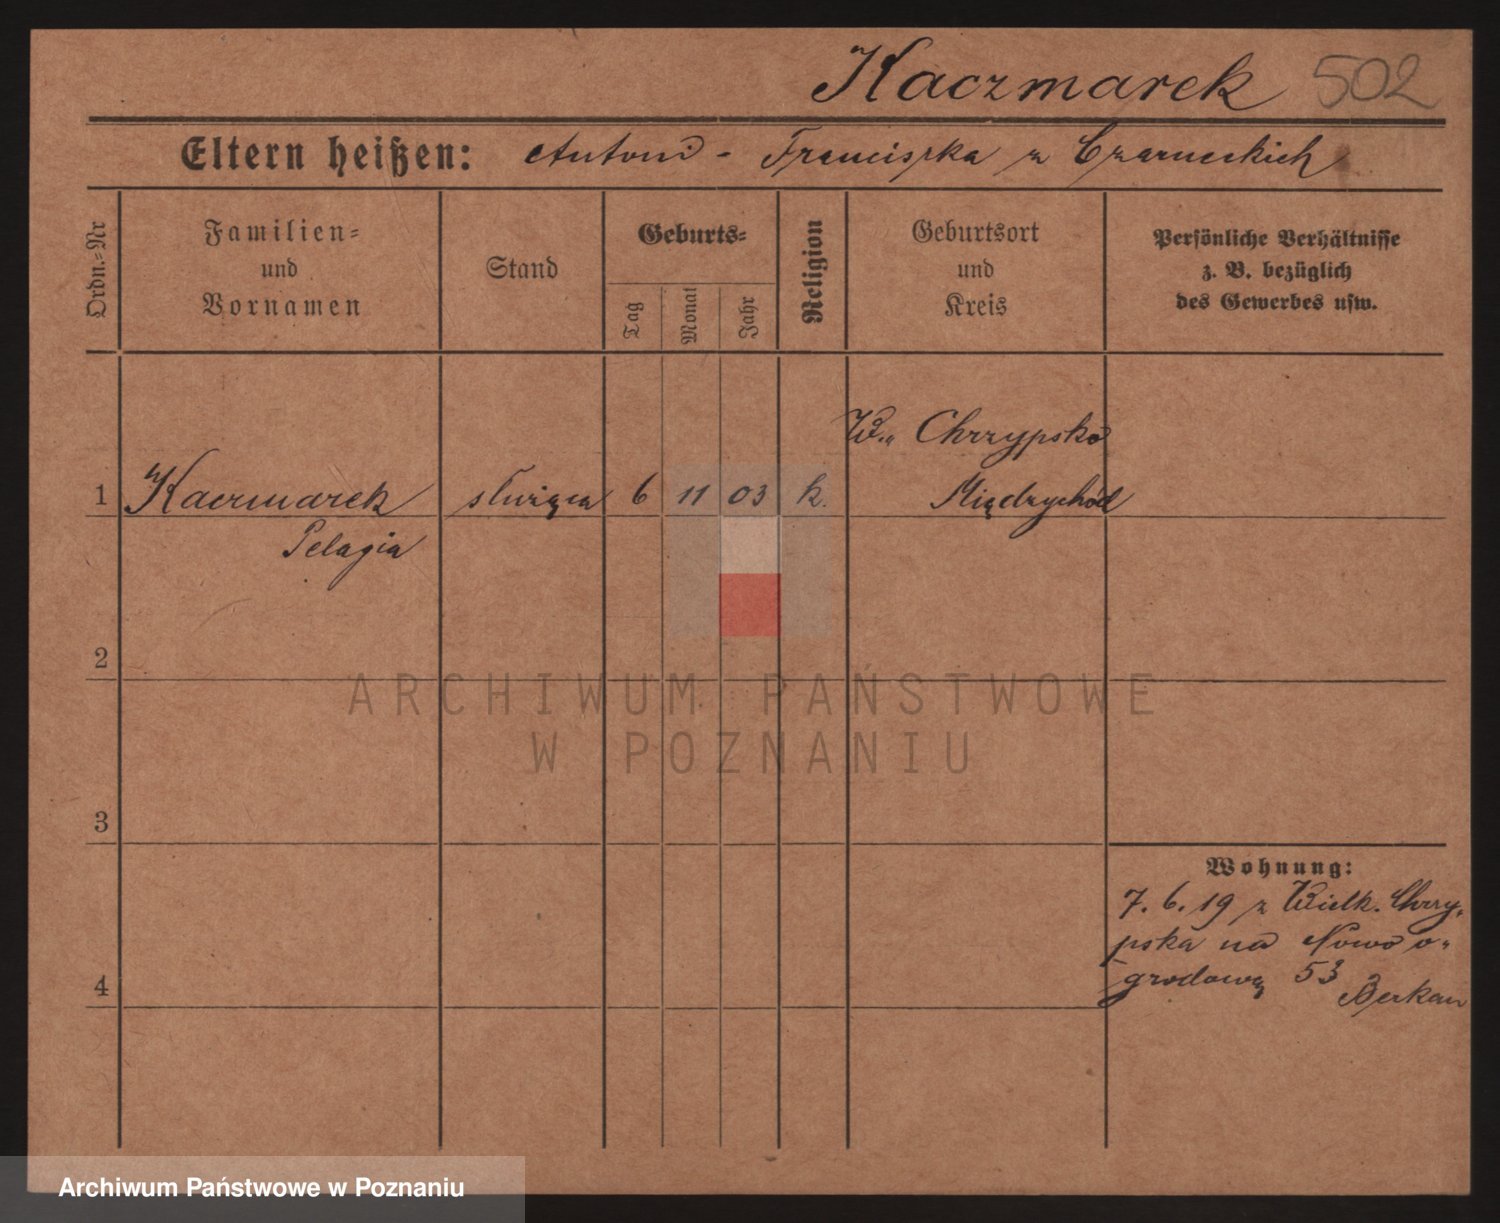 Kaczmarek 502
Eltern heißen: Antoni - Franciszka z Czarneckich
Ordn.=Nr
Familien=
und
Vornamen
Stand
Geburts=
Tag
Monat
Jahr
Religion
Geburtsort
und
Kreis
Persönliche Verhältnisse
z. B. bezüglich
des Gewerbes usw.
W. Chrzypsko
1 Kaczmarek służąca 6 11 03 k. Międzychód
Pelagia
2
ARCHIWUM PAŃSTWOWE
W POZNANIU
3
Wohnung:
7. 6. 19 z Wielk. Chrzy-
pska na Nowo o-
grodową 53
4
Berkan
Archiwum Państwowe w Poznaniu